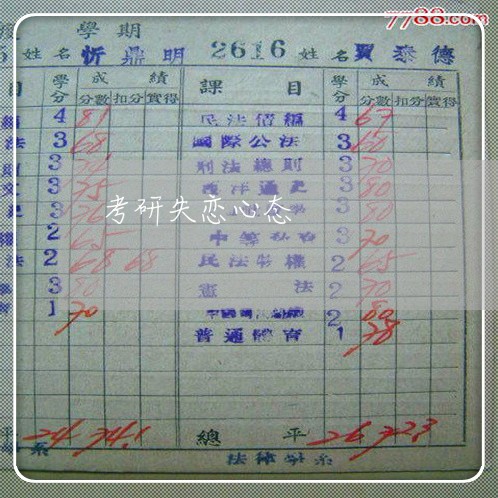 7788.com
學期
姓名 忻鼎明 2616 姓名 賈泰德
目 學分 成績 課目 學分 成績
分數 扣分 實得 分數 扣分 實得
4 81 民法債編 4 67
法 3 68 國際公法 3 60
3 刑法總則 3 70
3 75 西洋通史 3 80
3 76 3 80
考研失恋心态
2 65 3 70
法 2 68 68 民法物權 2 65
3 80 憲法 2 70
1 70 2 80
普通體育 1 78
平 24 74.1 總平 26 72.3
系 法律學系